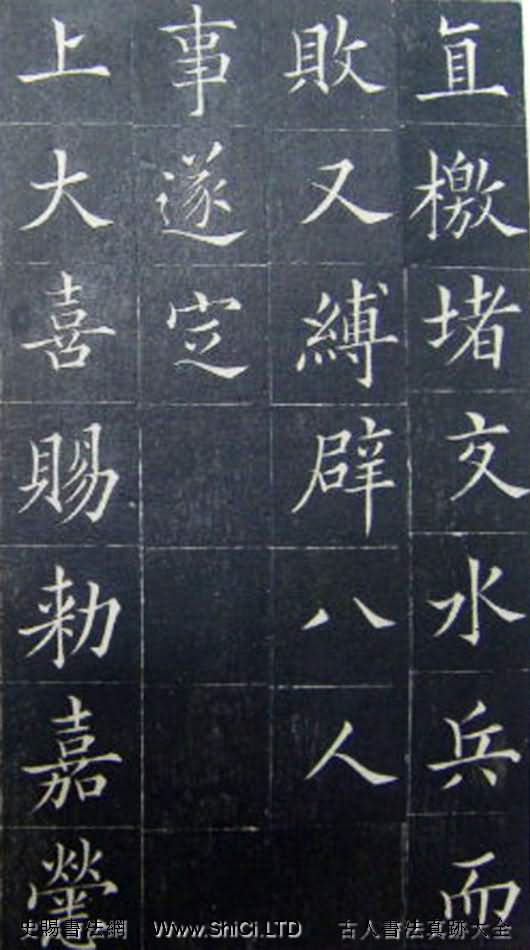 直檄堵文水兵而
敗又縛辟八人
事遂定
上大喜賜勅嘉
史賜書法網 Www.ShiCi.LTD 古人書法真跡大全